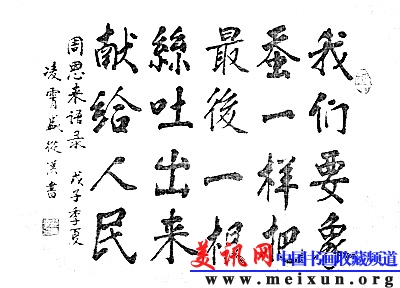 我们要象
蚕一样把
最後一根
絲吐出来
献给人民
周恩来语录 戊子季夏
凌霄 書
美讯网 中国书画收藏频道
www.meixun.net